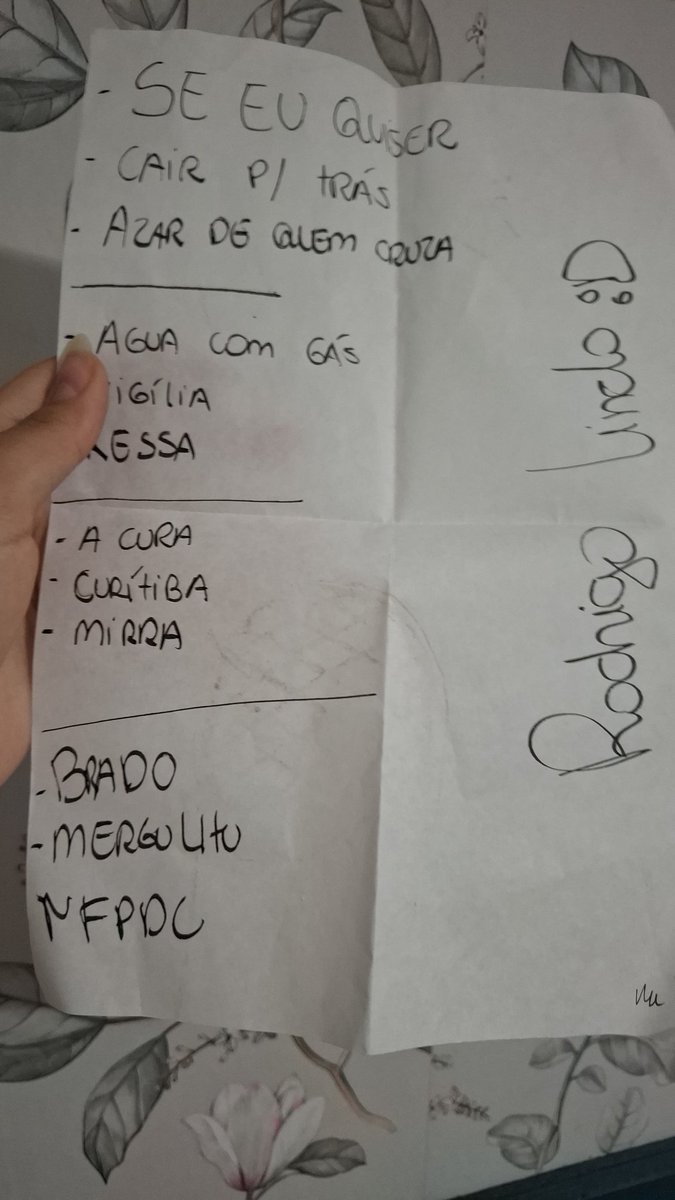 - SE EU QUISER
- CAIR P/ TRÁS
- AZAR DE QUEM CRUZA
- AGUA COM GÁS
IGÍLIA
RESSA
- A CURA
- CURÍTIBA
- MIRRA
- BRADO
- MERGULHO
NFPDC
Rodrigo